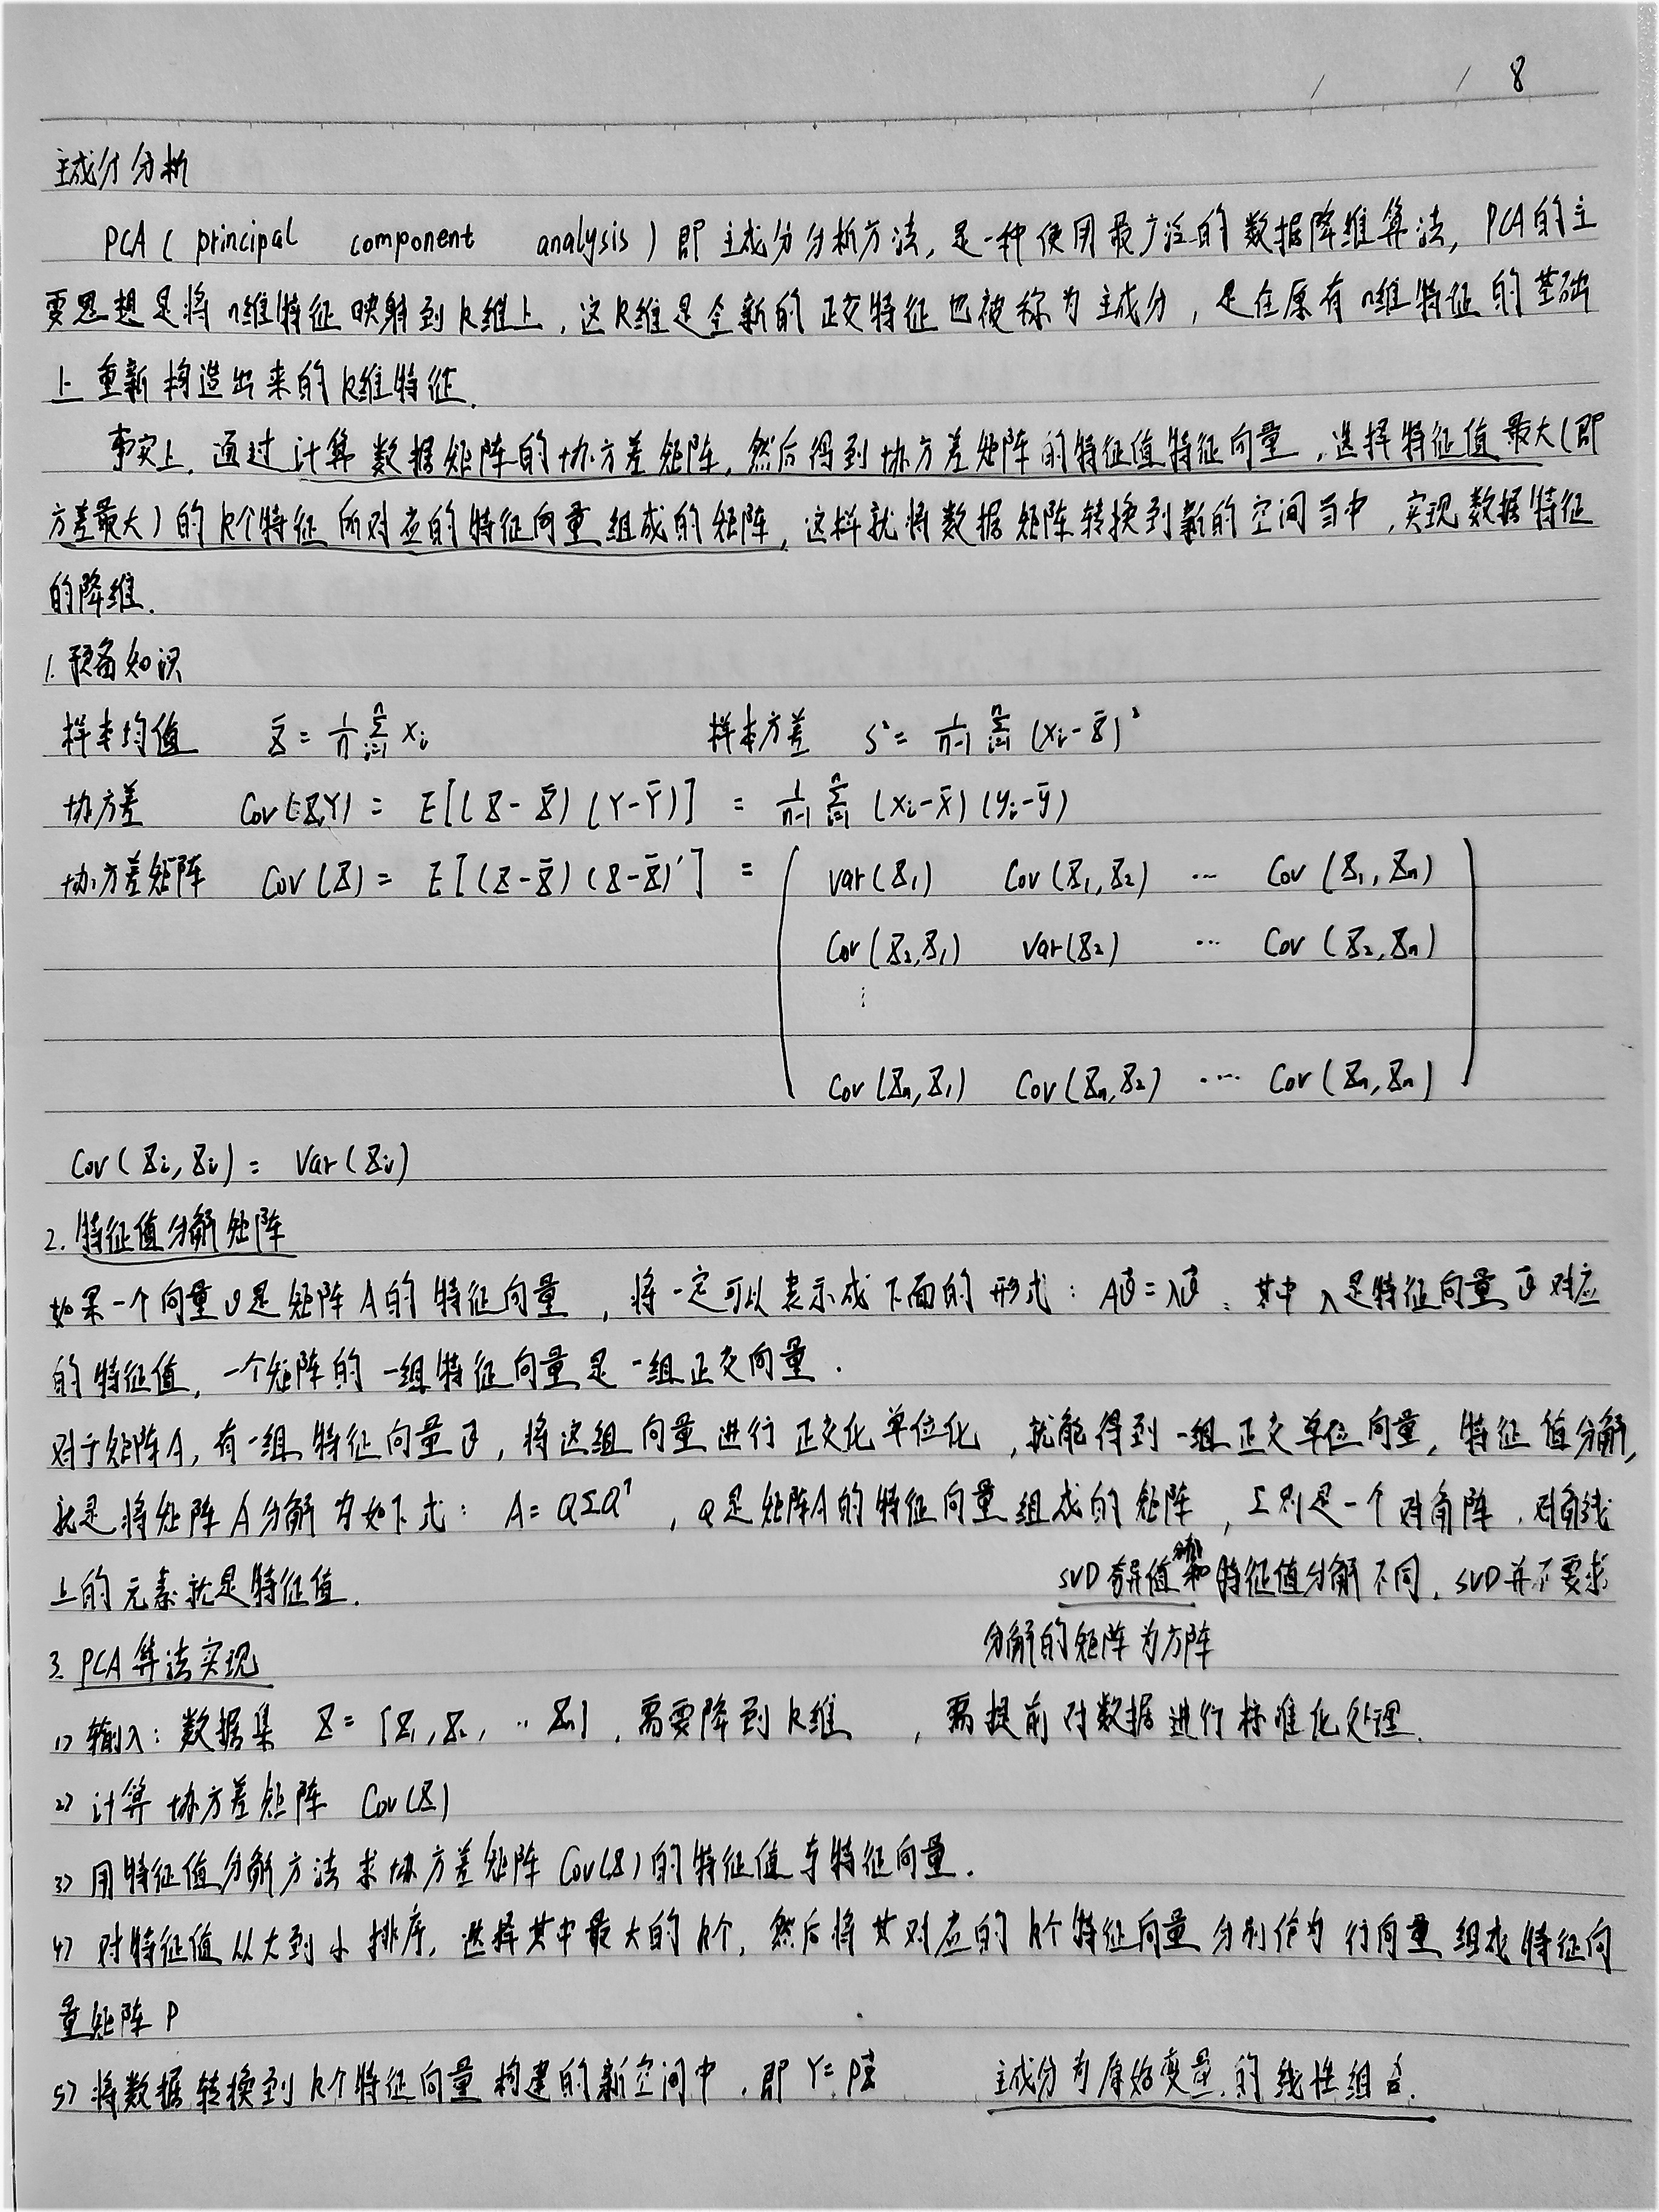 8
主成分分析
PCA ( principal component analysis ) 即主成分分析方法, 是一种使用最广泛的数据降维算法, PCA的主
要思想是将n维特征映射到k维上, 这k维是全新的正交特征也被称为主成分, 是在原有n维特征的基础
上重新构造出来的k维特征.
事实上, 通过计算数据矩阵的协方差矩阵, 然后得到协方差矩阵的特征值特征向量, 选择特征值最大(即
方差最大)的k个特征所对应的特征向量组成的矩阵, 这样就将数据矩阵转换到新的空间当中, 实现数据特征
的降维.
1. 预备知识
样本均值 X̄ = 1/n Σ_{i=1}^{n} x_i 样本方差 S² = 1/(n-1) Σ_{i=1}^{n} (x_i - X̄)²
协方差 Cov(X,Y) = E[(X-X̄)(Y-Ȳ)] = 1/(n-1) Σ_{i=1}^{n} (x_i-x̄)(y_i-ȳ)
协方差矩阵 Cov(X) = E[(X-X̄)(X-X̄)'] = ( Var(X₁) Cov(X₁,X₂) … Cov(X₁,Xₙ)
Cov(X₂,X₁) Var(X₂) … Cov(X₂,Xₙ)
⋮
Cov(Xₙ,X₁) Cov(Xₙ,X₂) … Cov(Xₙ,Xₙ) )
Cov(X_i,X_i) = Var(X_i)
2. 特征值分解矩阵
如果一个向量v是矩阵A的特征向量, 将一定可以表示成下面的形式: Av⃗ = λv⃗, 其中λ是特征向量v⃗对应
的特征值, 一个矩阵的一组特征向量是一组正交向量.
对于矩阵A, 有一组特征向量v⃗, 将这组向量进行正交化单位化, 就能得到一组正交单位向量, 特征值分解,
就是将矩阵A分解为如下式: A = QΣQ⁻¹, Q是矩阵A的特征向量组成的矩阵, Σ则是一个对角阵, 对角线
上的元素就是特征值. SVD奇异值分解和特征值分解不同, SVD并不要求
分解的矩阵为方阵
3. PCA算法实现
1) 输入: 数据集 X = [X₁, X₂, … Xₙ], 需要降到k维, 需提前对数据进行标准化处理.
2) 计算协方差矩阵 Cov(X)
3) 用特征值分解方法求协方差矩阵Cov(X)的特征值与特征向量.
4) 对特征值从大到小排序, 选择其中最大的k个, 然后将其对应的k个特征向量分别作为行向量组成特征向
量矩阵P
5) 将数据转换到k个特征向量构建的新空间中, 即Y=PX 主成分为原始变量的线性组合.